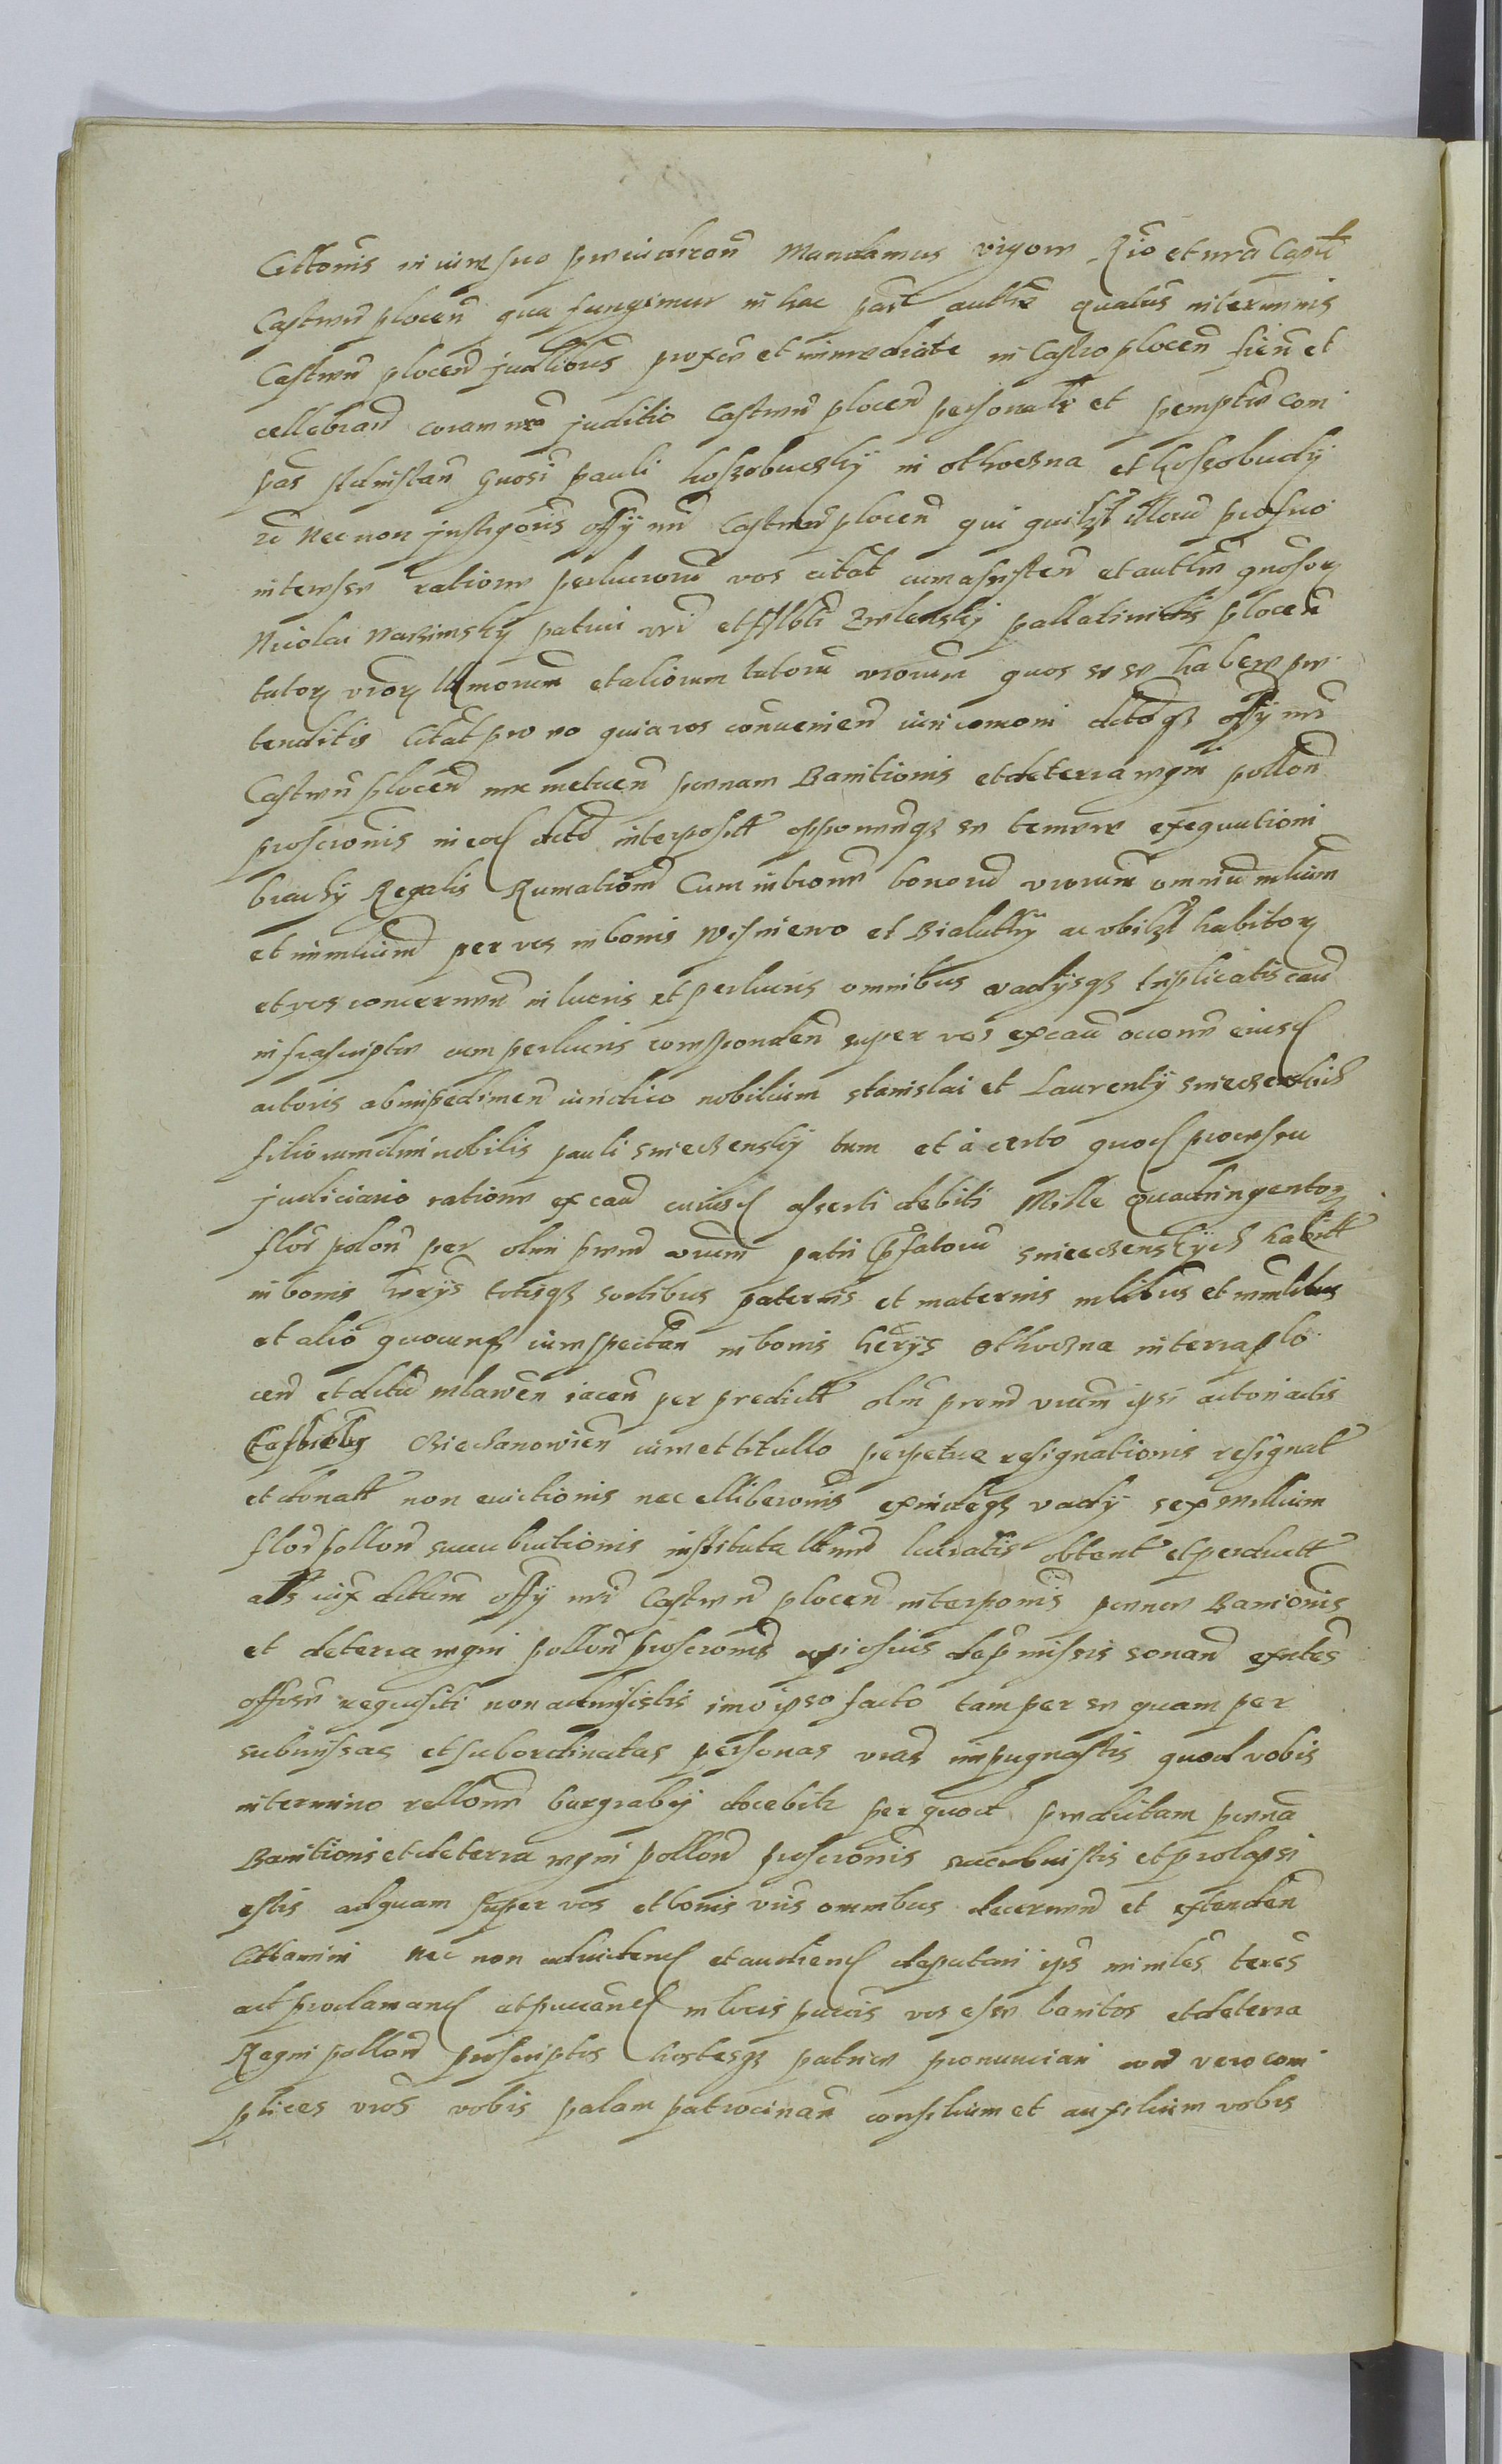 Cittonis in iure suo preiudican Mandamus vigore Rio et nra Capli
Castren plocen qua fungimur in hac part authe quatus interminis
Castren plocen judlibus proxe et immediate in Castro plocen fien et
cellebrand coram nro juditio Castren plocen personalr et pempte com
pas ad instan Gnosi pauli koszobuczky in othoczna et koszobudy
Nec non instigoris offy nri Castren plocen qui quilzt illorum pro suo
interesse ratione perlucrorum vos citat cum assisten et authe gnosor
Nicolai Narzimsky patrui vri et Albti Zielensky pallatinidis plocen
tutor vror Ulmorum et aliorum tutorum vrorum quos se se habere pre
tenditis Citat pro eo quia vos convenien iuri comoni dctoqz offy nri
Castren plocen nec metuen penam Banitionis et de terra regni pollon
proscronis in eod dcto interposit opponendoqz se temere exequutioni
brachy Regalis Rumationi Cum intione bonorum vrorum omnium mlium
et immlium per vos in bonis Wisniewo et Bialutky ac vbilzt habitor
et vos concernen in lucris et perlucris omnibus vadysqz triplicatis cau
infrascriptis cum perlucris correspondend super vos ex cau ... eiusd
actoris ab impedimen iuridico nobilium Stanislai et Laurenty Smeczenskich
filiorum olim nobilis pauli smieczensky tum et à certo quod processu
judiciario ratione ex cau cuiusd asserti debiti Mille Quadringentor
flor polon per olim pnud vrum patri pfatorum smieczenskych habitt
in bonis herys totisqz sortibus paternis et maternis mlibus et immlibus
et alio quocunqz iure spectan in bonis herys othoczna in terra plo
cen et dctu mlawen iacen per predictt olm prend vrum ipsi actori actis
Castrebus Ciechanowien iure et titullo perpetuæ resignationis resignat
et donatt non evictionis nec elliberonis exindeqz vady sex millium
flor pollon succubuitionis instituta ... lucratis obtent et perductt
als iux dctum offy nri Castren plocen interponis penæ Banionis
et de terra regni pollon proscronis ... missis sonan exntes
officose requisiti non admisistis imo ipso facto tam per se quam per
submissas et subordinatas personas vras impugnastis quod vobis
in termino rellone burgraby docebitr per quod predictam pena
Banitionis et de terra regni pollon proscronis succubuistis et prolapsi
estis ad quam super vos et bonis vris omnibus decernen et extenden
Cittamini Nec non ad vidend et audiend deputari ips minles teres
ad proclamand et puccand in locis puccis vos esse banitos et de terra
Regni pollon proscriptos hostesqz patriæ pronunciari eorum vero com
plices vros vobis palam patrocinan consilium et auxilium vobis